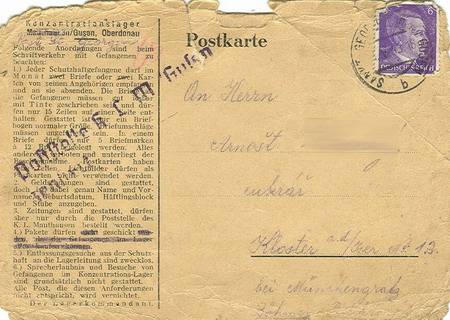 Konzentrationslager
Mauthausen/Gusen, Oberdonau
Folgende Anordnungen sind beim
Schriftverkehr mit Gefangenen zu
beachten:
1.) Jeder Schutzhaftgefangene darf im
Monat zwei Briefe oder zwei Kar-
ten von seinen Angehörigen empfangen
und an sie absenden. Die Briefe an
Gefangene müssen gut lesbar
mit Tinte geschrieben sein und dür-
fen nur 15 Zeilen auf einer Seite ent-
halten. Gestattet ist nur ein Brief-
bogen normaler Größe. Briefumschläge
müssen ungefüttert sein. In einem
Briefe dürfen nur 5 Briefmarken
à 12 Pf beigelegt werden. Alles
andere ist verboten und unterliegt der
Beschlagnahme. Postkarten haben
10 Zeilen. Lichtbilder dürfen als
Postkarten nicht verwendet werden.
2.) Geldsendungen sind gestattet,
doch ist dabei genau Name und Vor-
name, Geburtsdatum, Häftlingsblock
und Stube anzugeben.
3.) Zeitungen sind gestattet, dürfen
aber nur durch die Poststelle des
K. L. Mauthausen bestellt werden.
4.) Pakete dürfen nicht geschickt
5.) Entlassungsgesuche aus der Schutz-
haft an die Lagerleitung sind zwecklos.
6.) Sprecherlaubnis und Besuche von
Gefangenen im Konzentrations-Lager
sind grundsätzlich nicht gestattet.
Alle Post, die diesen Anforderungen
nicht entspricht, wird vernichtet.
Der Lagerkommandant.
Poststelle K. L. M. Gusen
Postkarte
6
DEUTSCHES REICH
SANKT GEORGEN
b
An Herrn
Arnošt
cukrář
Kloster a.d./Iser № 13.
bei Münchengrätz